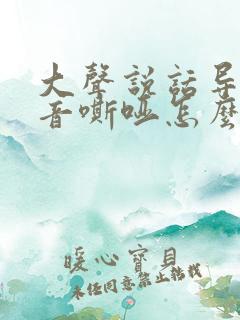 大聲説話导
音嘶哑怎麽
暖心寶貝
未经同意禁止转载